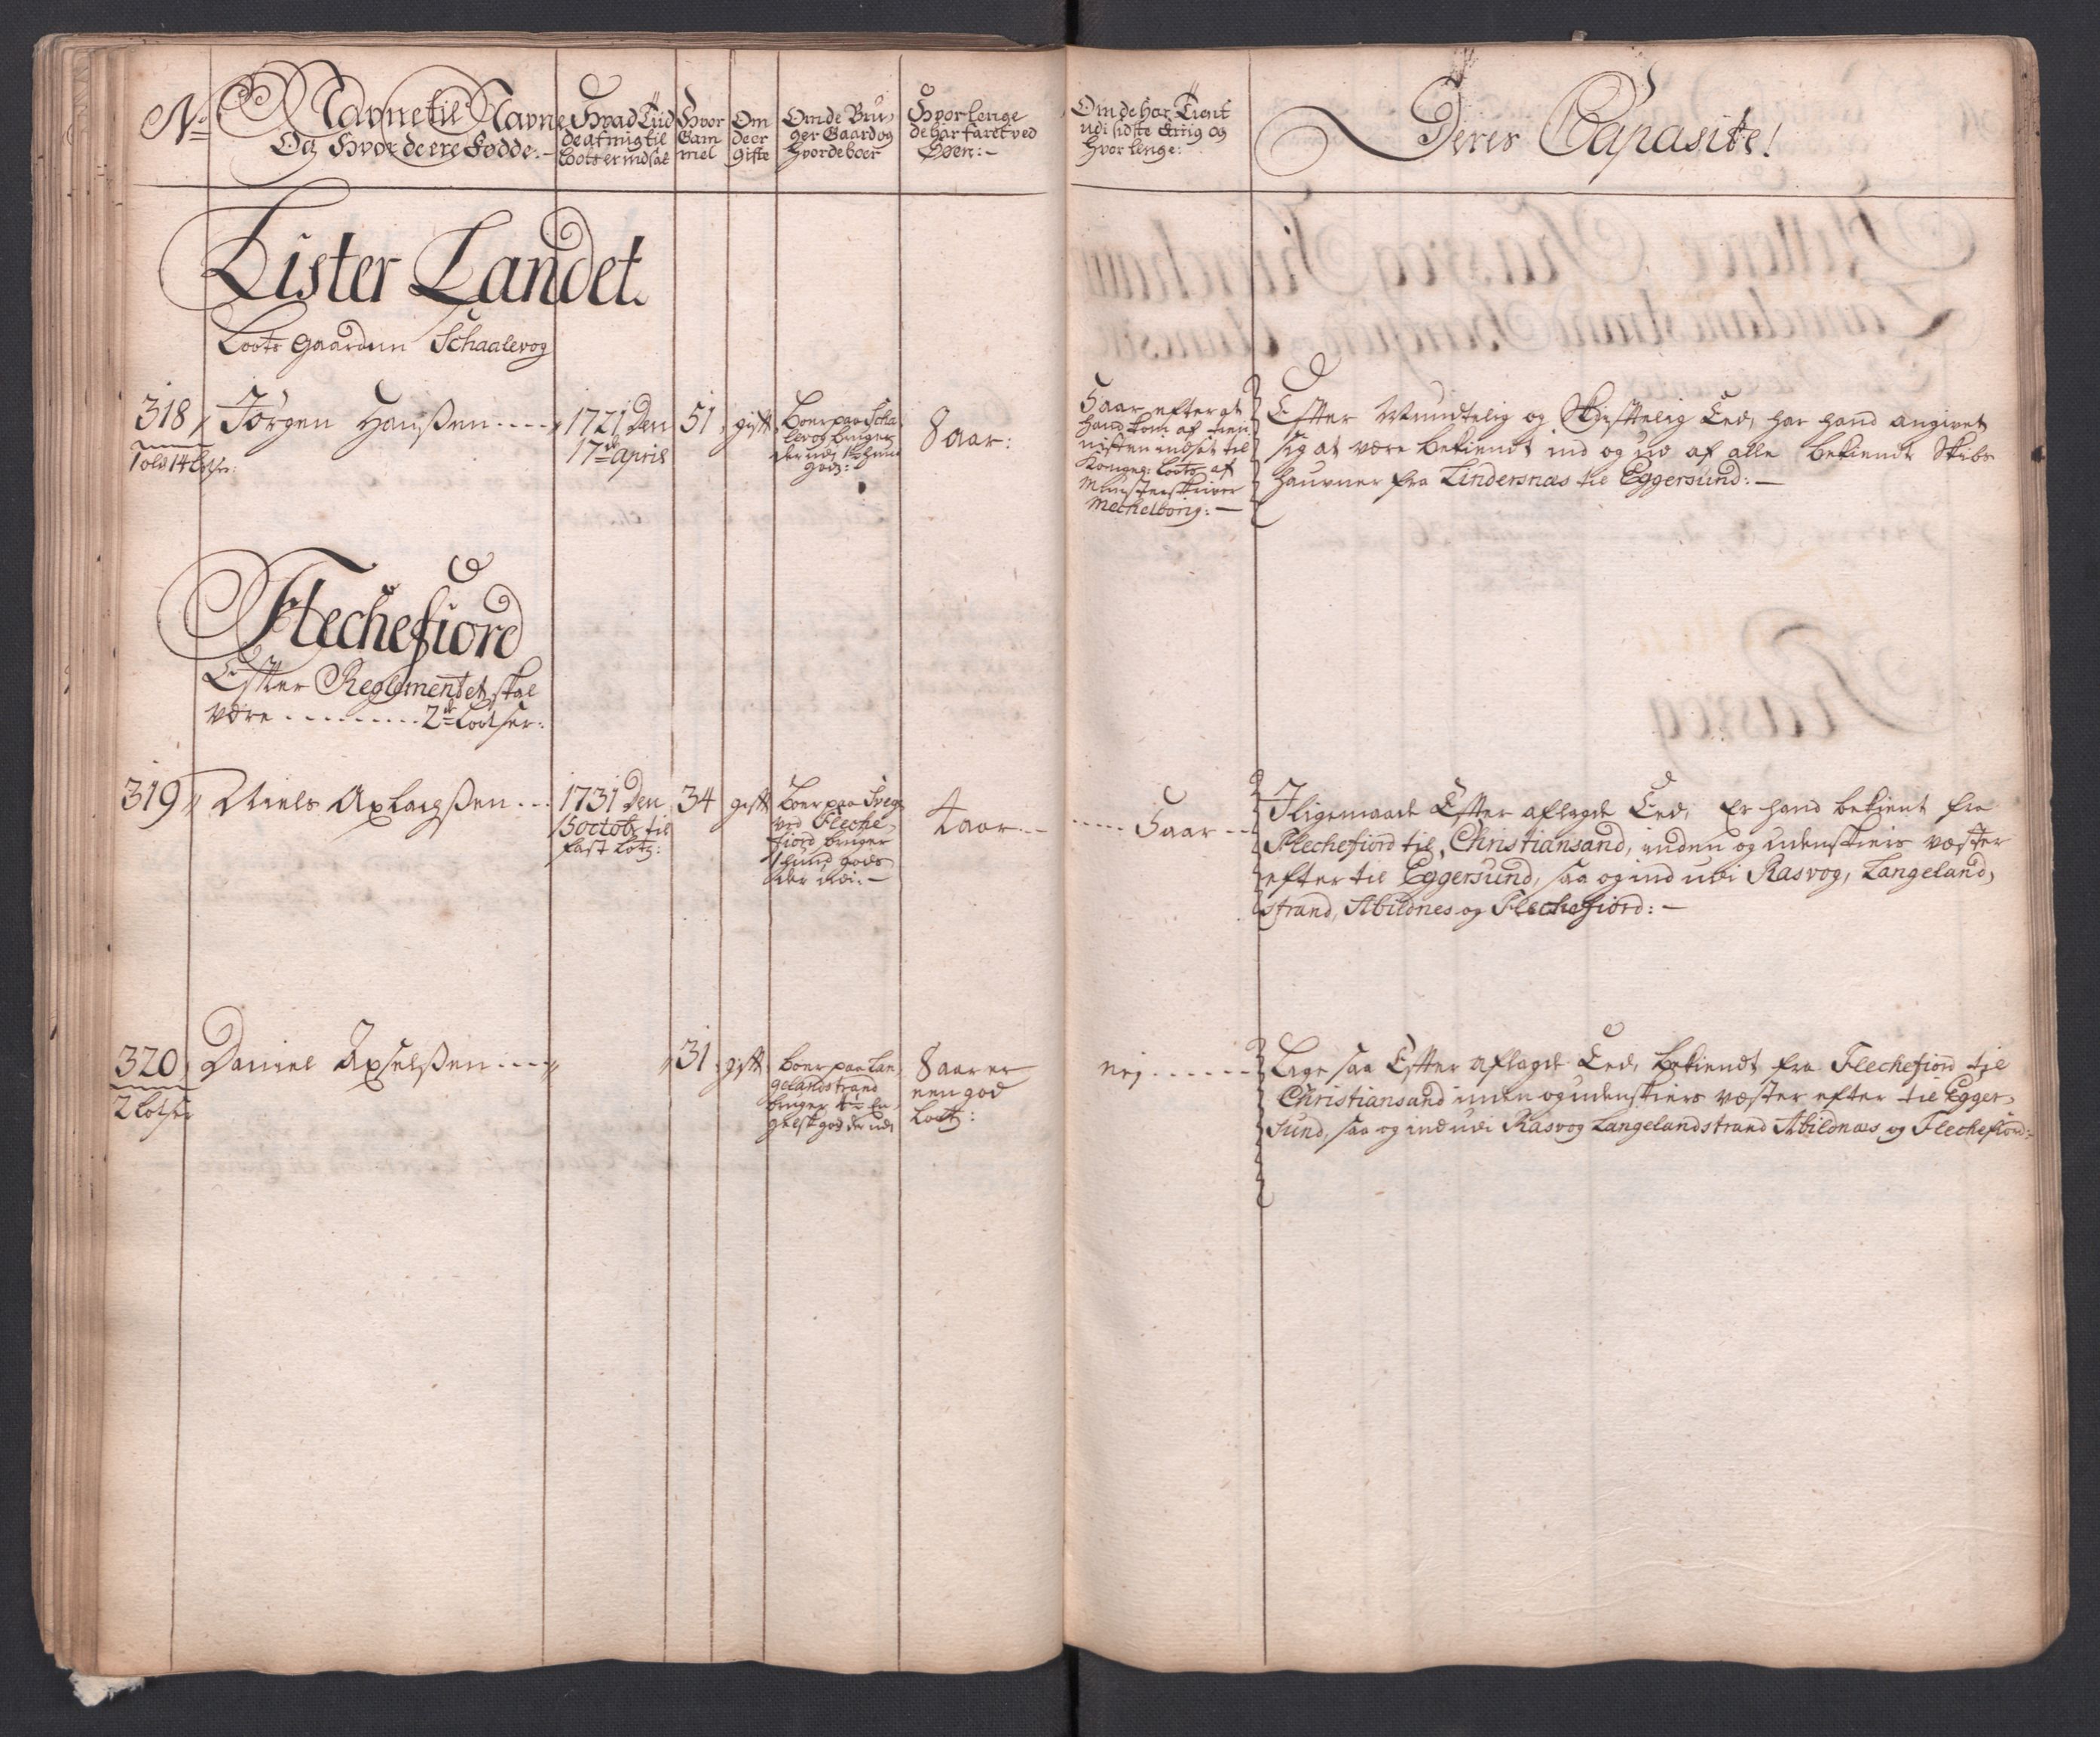 No
Navne til Navne
Og Hvor de ere Fødde.
Hvad Tiid
de af mig til
Loots er indsat
Hvor
Gam
mel
Om
de er
gifte
Om de Bru,
ger Gaard og
Hvor de boer
Hvor lenge
de har faret ved
Søen:
Om de har Tient
udi sidste Krig og
Hvor lenge:
Deres Capasite!
Lister Landet.
Loots Gaarden Schaalevog
318
1 old 14 Lodser:
Jørgen Hanßen
1721 den
17de April
51
gift
Boer paa Scha
levog bruger
der udj 1
gods:
8 aar:
5 aar, efter at
hand kom af tien
nisten indsat til
Konges: Loots af
Mynsterskriver
Mechelborig:
Efter Mundtelig og Skrifftelig Eed, har hand angivet
sig at være bekiendt ind og ud af alle bekiendte Skibs
Haufner fra Lindersnæs til Eggersund:
Flechefiord
Efter Reglementet skal
være 2de Lootser:
319
Niels Axlacßen
1731 den
15 octob: til
fast Lots:
34
gift
boer paa Sveg
ved Fleche,
fiord bruger
1 hund gods
der udi.
4 aar
5 aar
Iligemaade Efter aflagde Eed, er hand bekient fra
Flechefiord til Christiansand, inden og udenskiers væster
efter til Eggersund, saa og ind udi Rasvog, Langeland,
strand, Abildnes og Flechefiord:
320
2 Lotser
Daniel Axselsßen
31
gift
boer paa Lan,
gelandstrand
bruger
gelsk god der udi
8 aar er
een god
Loots:
nej
Lige saa Efter aflagde Eed, bekiendt fra Flechefiord til
Christiansand inden og udenskiers væster efter til Egger,
sund, saa og ind udi Rasvog Langelandstrand Abildnæs og Flechefiord: